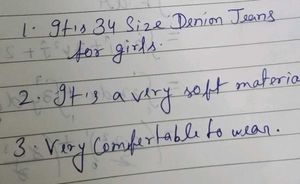 1. It is 34 Size Denion Jeans
for girls.
2. It's a very soft materia
3. Very Comfertable to wear.